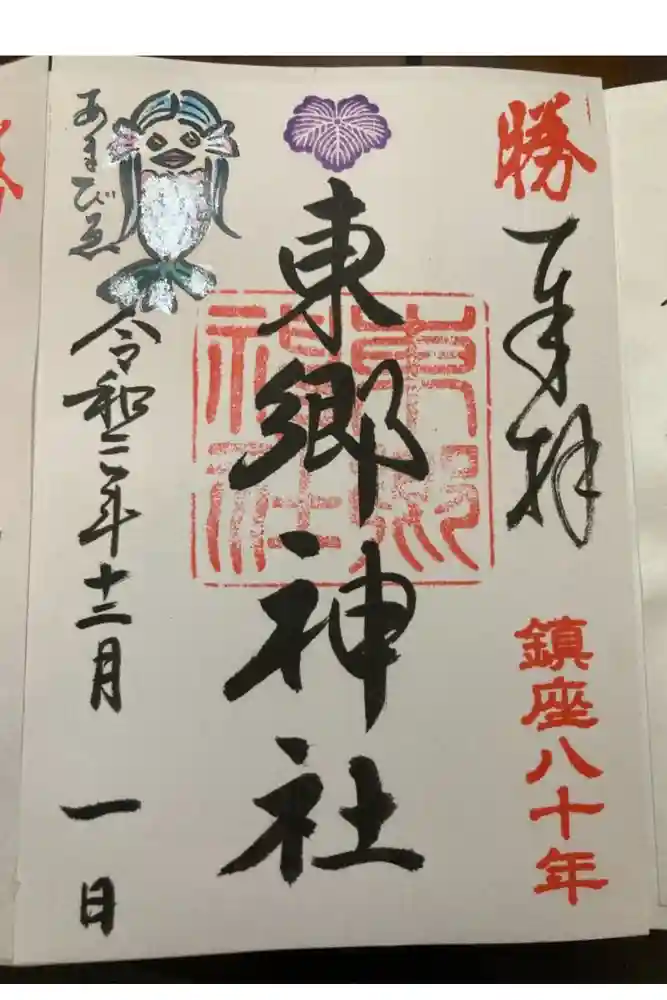 勝
奉拝
鎮座八十年
東郷神社
東郷神社
令和二年十二月一日
あまびゑ